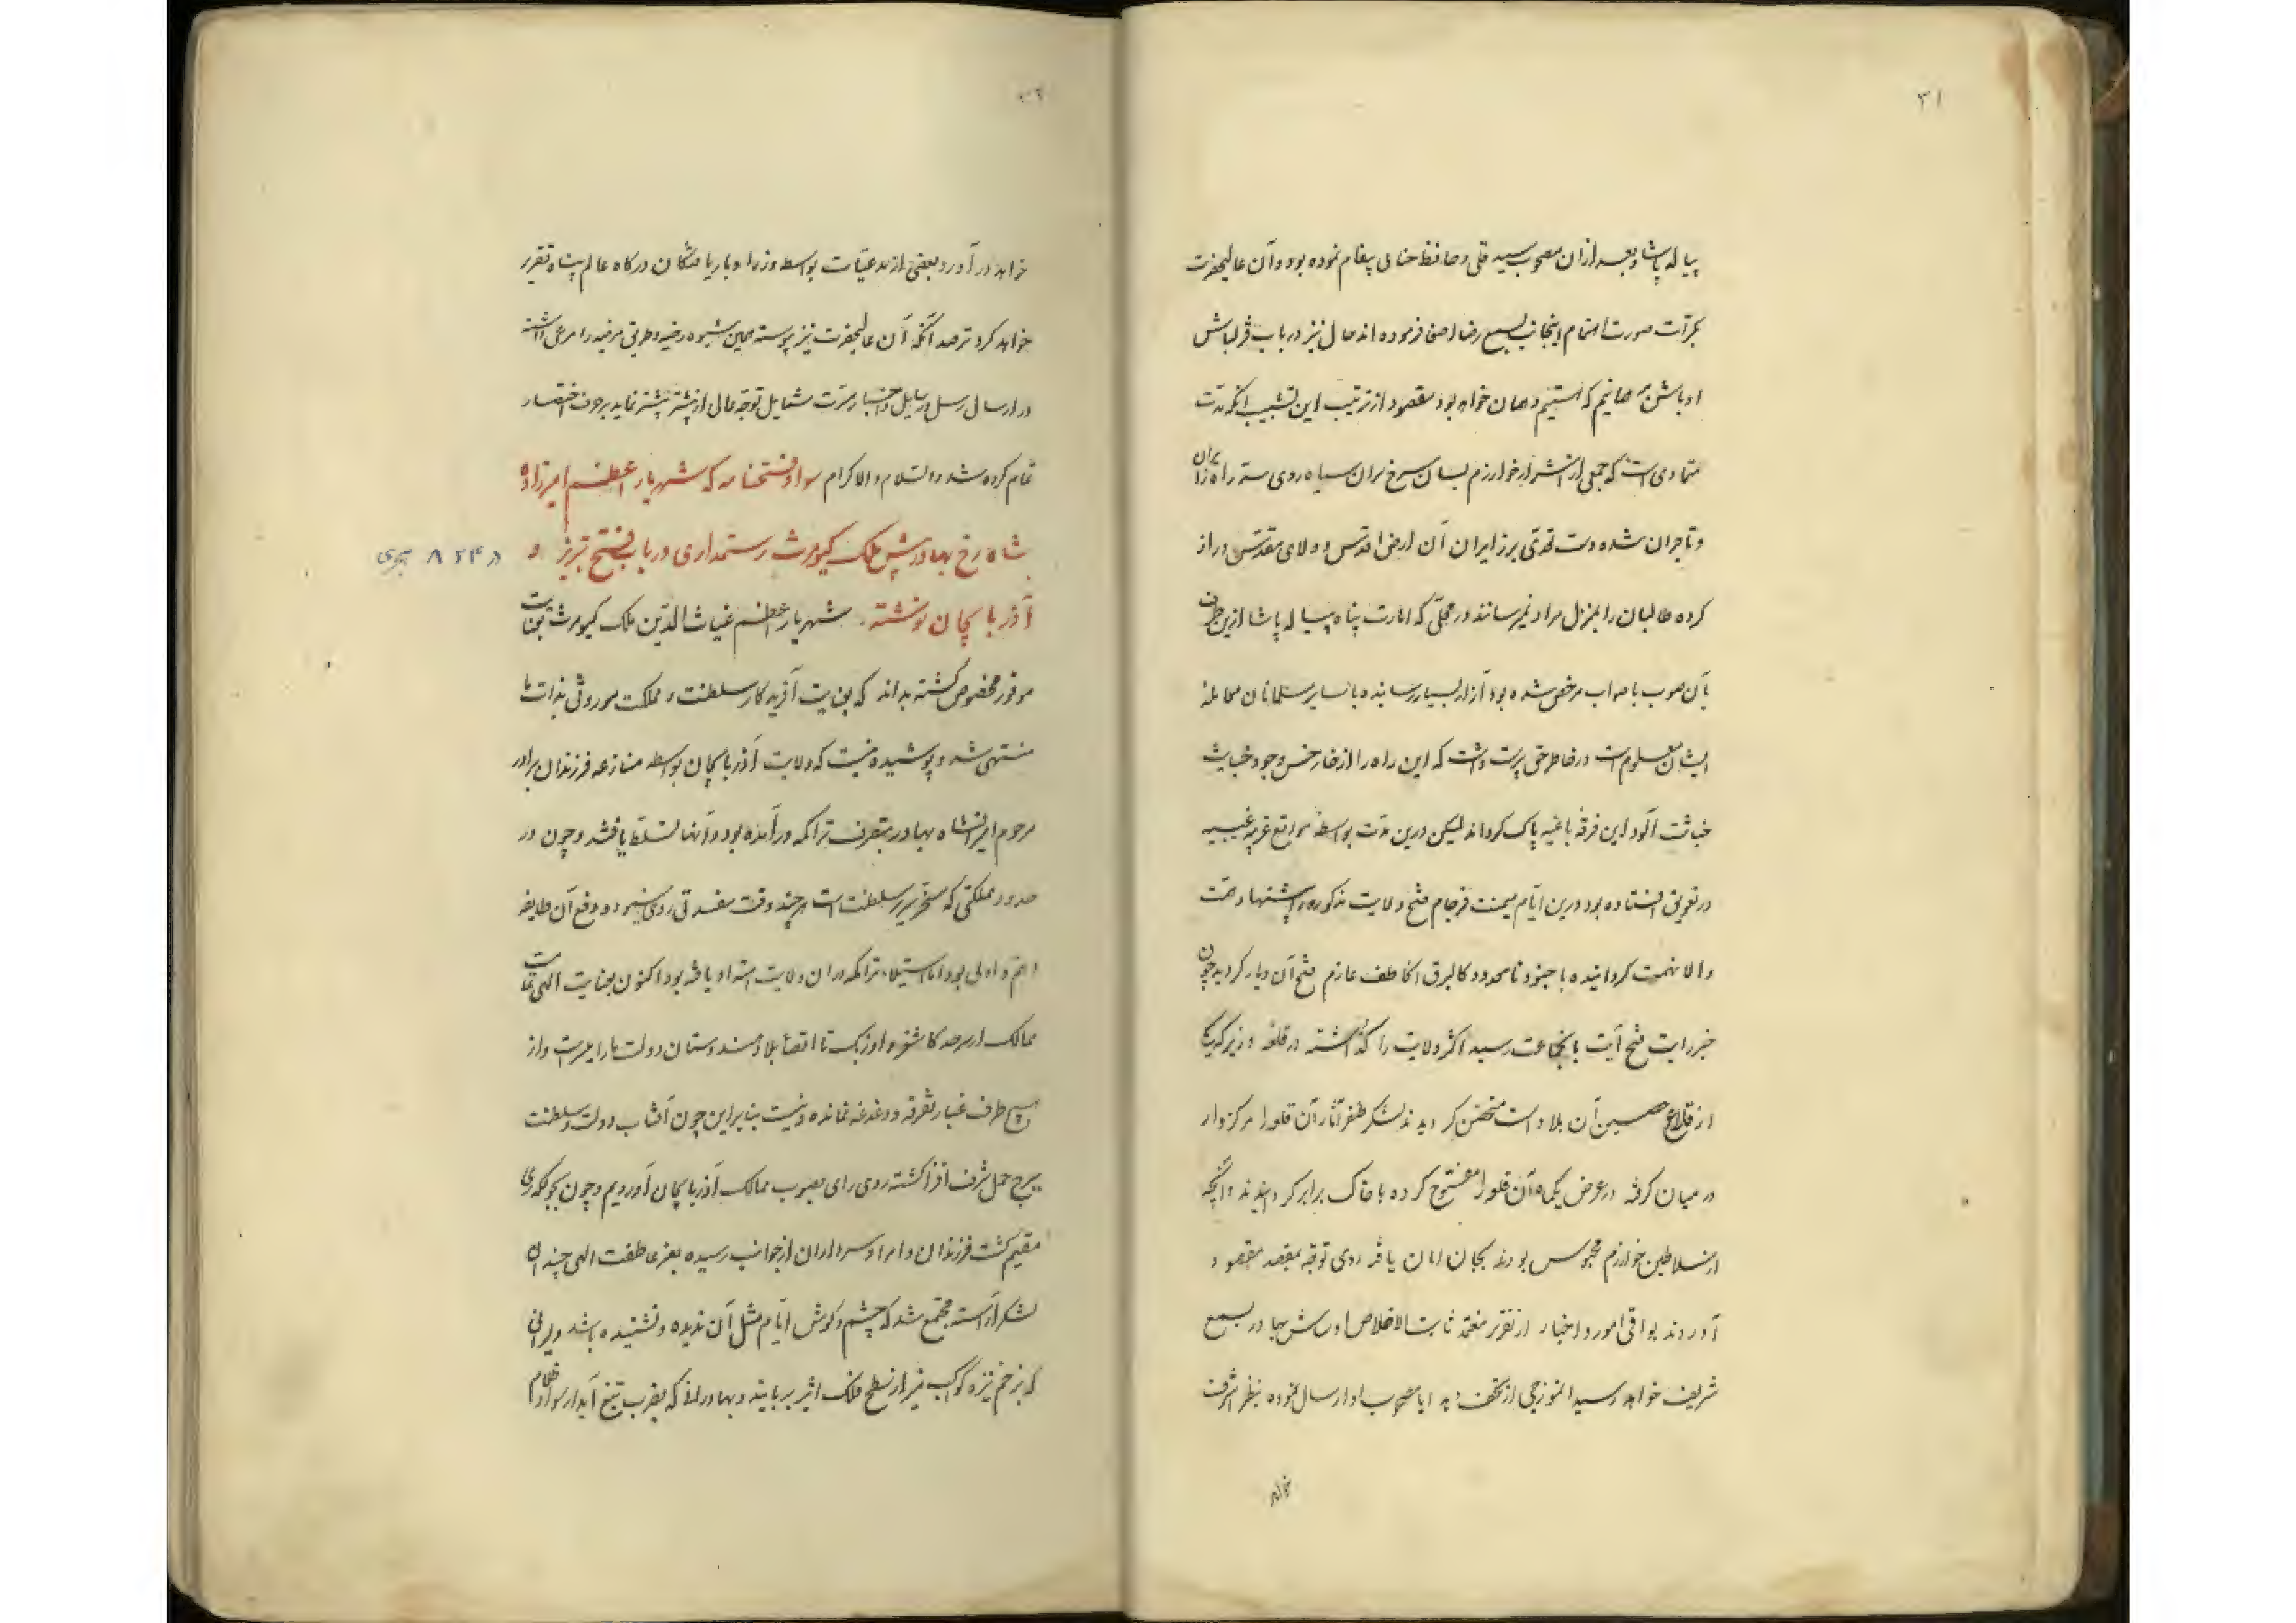 ۳۱
پیاله پاشا و بعد از آن مصحوب سید قلی و حافظ خنالی پیغام نموده بود و آن عالیحضرت
بکرات صورت اهتمام اینجانب بسمع رضا اصغا فرموده‌اند حال نیز در باب قزلباش
اوباش بر همانیم که هستیم و همان خواهد بود مقصود از ترتیب این تشبیب آنکه مدت
متمادی است که جمعی از اشرار خوارزم بسان سرخ سران سیاه روی سد راه زایران
و تاجران شده دست تعدی بر زایران آن ارض اقدس و ولای مقدس دراز
کرده طالبان را بمنزل مراد نمیرسانند در محلی که امارت پناه پیاله پاشا ازین طرف
بآن صوب باصواب مرخص شده بود آزار بسیار رسانیده با سایر مسلمانان معامله
ایشان معلوم است در خاطر حق پرست داشت که این راه را از خار خس وجود خبایث
خباثت آلود این فرقه باغیه پاک گرداند لیکن درین مدت بواسطه مواقع غریبه غیبیه
در تعویق افتاده بود درین ایام میمنت فرجام فتح ولایت مذکوره را پیشنهاد همت
والا نهمت گردانیده با جنود نامحدود کالبرق الخاطف عازم فتح آن دیار گردید چون
خبر رایت فتح آیت بآنجماعت رسید اکثر ولایت را گذاشته در قلعه وزیر که یکی
از قلاع حصین آن بلاد است متحصن گردیدند لشکر ظفر آثار آن قلعه را مرکزوار
در میان گرفته در عرض یکماه آن قلعه را مفتوح کرده با خاک برابر گردانیدند و آنچه
از سلاطین خوارزم محبوس بودند بجان امان یافته روی توجه بمقصد مقصود
آوردند بواقی امور و اخبار از تقریر معتمد ثابت الاخلاص اورش بهادر بسمع
شریف خواهد رسید انموزجی از تحف و هدایا مصحوب او ارسال نموده بنظر اشرف
خواهد
۳۲
خواهد در آورد و بعضی از مدعیات بواسطه وزرا و باریافتگان درگاه عالم پناه تقریر
خواهد کرد ترصد آنکه آن عالیحضرت نیز پیوسته همین شیوه رضیه و طریق مرضیه را مرعی داشته
در ارسال رسل و رسایل و اخبار مسرت شمایل توجه عالی از پیشتر بیشتر نماید بر حرف اختصار
تمام کرده شد والسلام والاکرام سواد فتحنامه که شهریار اعظم امیرزاده
شاه رخ بهادر پیش ملک کیومرث رستمداری در باب فتح تبریز و
در ۸۲۴ هجری
آذربایجان نوشته. شهریار اعظم غیاث الدین ملک کیومرث بعنایت
موفور مخصوص گشته بداند که بعنایت آفریدگار سلطنت و مملکت موروثی بذات ما
منتهی شد و پوشیده نیست که ولایت آذربایجان بواسطه منازعه فرزندان برادر
مرحوم امیرانشاه بهادر بتصرف تراکمه در آمده بود و آنها تسلط یافتند و چون در
حدود مملکتی که مسخر سریر سلطنت است هر چند وقت مفسدتی روی مینمود و دفع آن طایفه
اهم و اولی بود اما استیلاء تراکمه در آن ولایت امتداد یافته بود اکنون بعنایت الهی تمامت
ممالک از سرحد کاشغر و اوزبک تا اقصا بلاد هندوستان دولت ما را میسر است و از
هیچ طرف غبار تفرقه و دغدغه نمانده و نیست بنابراین چون آفتاب دولت و سلطنت
ببرج حمل شرف افزا گشته روی رای بصوب ممالک آذربایجان آوردیم و چون
مقیم گشت فرزندان و امرا و سرداران از جوانب رسیده بفر عاطفت الهی چندان
لشکر آراسته مجتمع شد که چشم و گوش ایام مثل آن ندیده و نشنیده باشد دلیرانی
که بزخم نیزه کوکب منیر از سطح فلک اثیر بربایند و بهادرانی که بضرب تیغ آبدار سواد ظلام